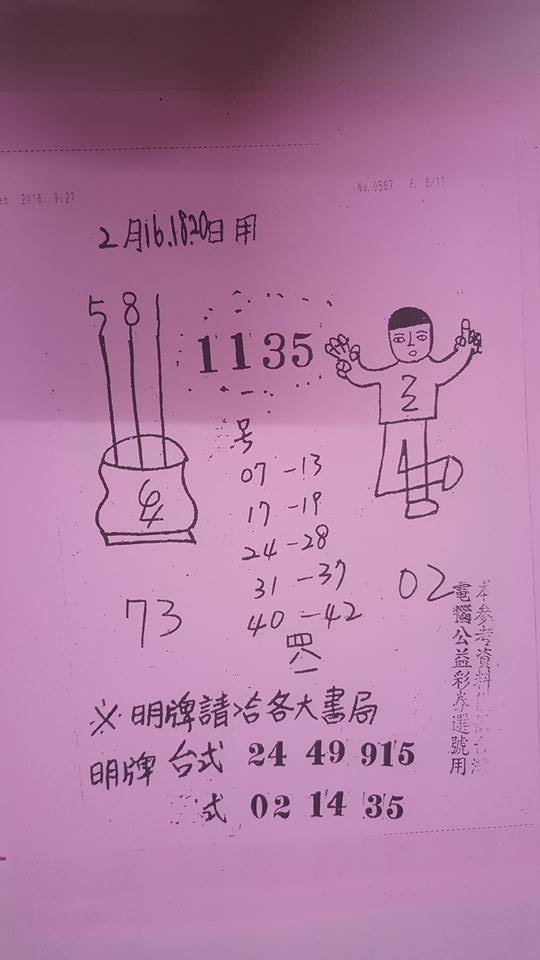 2016 9:27
No.0587 P. 8/11
2月16.18.20日用
5 8 1
1135
号
07-13
17-19
24-28
31-37
40-42
四八一
73
02
※明牌請洽各大書局
明牌 台式 24 49 915
式 02 14 35
本參考資料
電腦公益彩券選號用